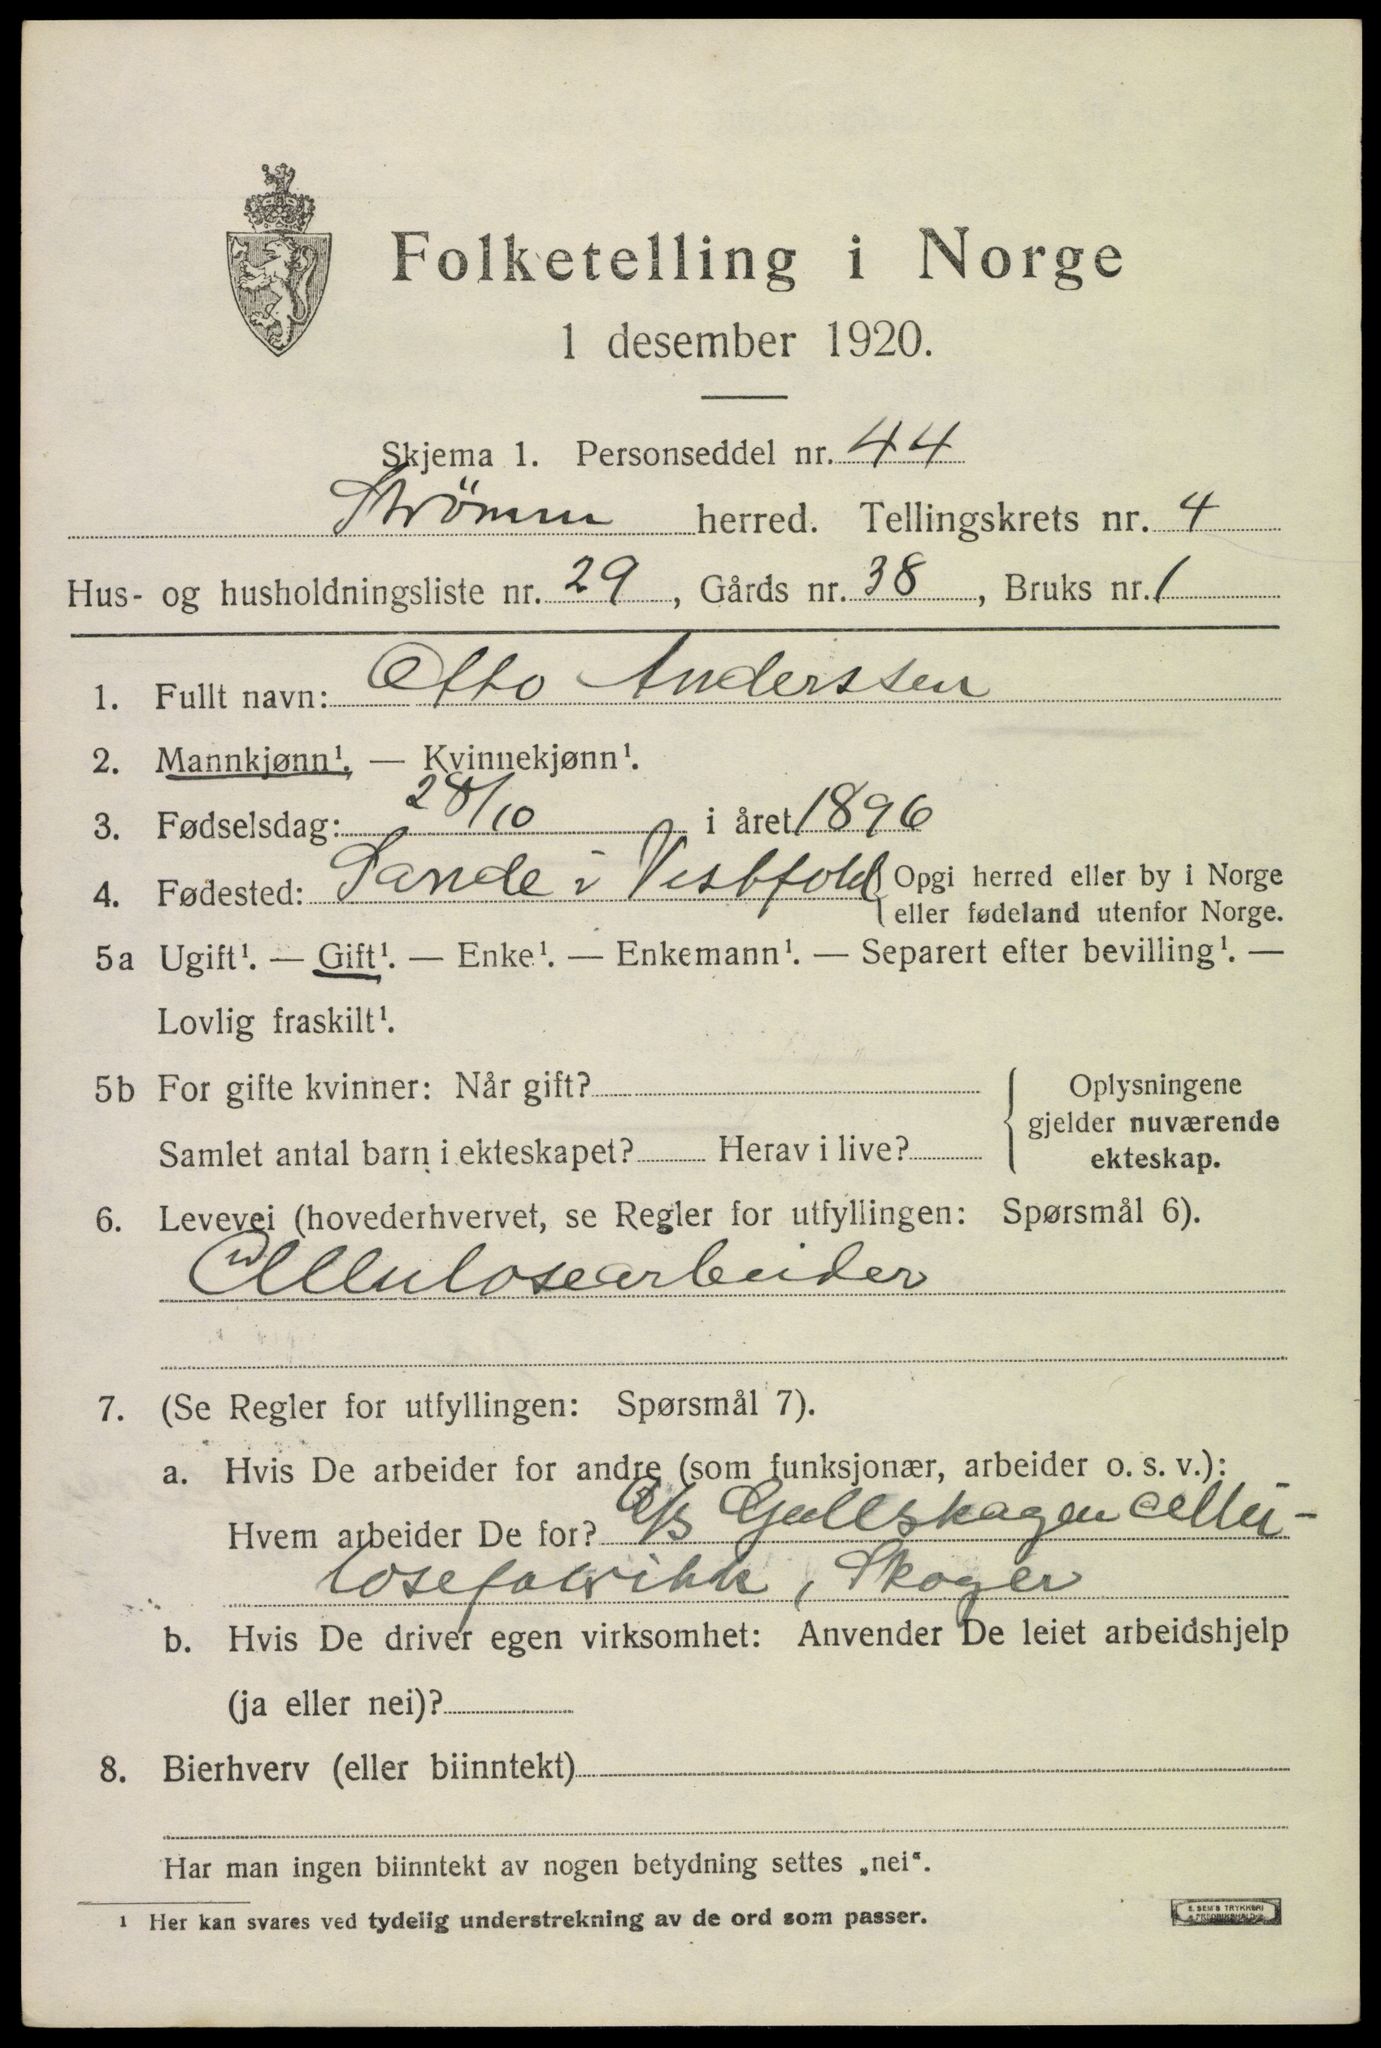 Folketelling i Norge
1 desember 1920.
Skjema 1. Personseddel nr. 44
Strömm herred. Tellingskrets nr. 4
Hus- og husholdningsliste nr. 29, Gårds nr. 38, Bruks nr. 1
1. Fullt navn: Otto Anderssen
2. Mannkjønn¹. — Kvinnekjønn¹.
3. Fødselsdag: 28/10 i året 1896
4. Fødested: Sande i Vestfold { Opgi herred eller by i Norge
eller fødeland utenfor Norge.
5a Ugift¹. — Gift¹. — Enke¹. — Enkemann¹. — Separert efter bevilling¹. —
Lovlig fraskilt¹.
5b For gifte kvinner: Når gift?
Samlet antal barn i ekteskapet? Herav i live?
{ Oplysningene
gjelder nuværende
ekteskap.
6. Levevei (hovederhvervet, se Regler for utfyllingen: Spørsmål 6).
Cellulosearbeider
7. (Se Regler for utfyllingen: Spørsmål 7).
a. Hvis De arbeider for andre (som funksjonær, arbeider o. s. v.):
Hvem arbeider De for? A/S Gullskagen cellu-
losefabrikk, Skoger
b. Hvis De driver egen virksomhet: Anvender De leiet arbeidshjelp
(ja eller nei)?
8. Bierhverv (eller biinntekt)
Har man ingen biinntekt av nogen betydning settes „nei“.
¹ Her kan svares ved tydelig understrekning av de ord som passer.
E. SEM'S TRYKKERI
FREDRIKSHALD